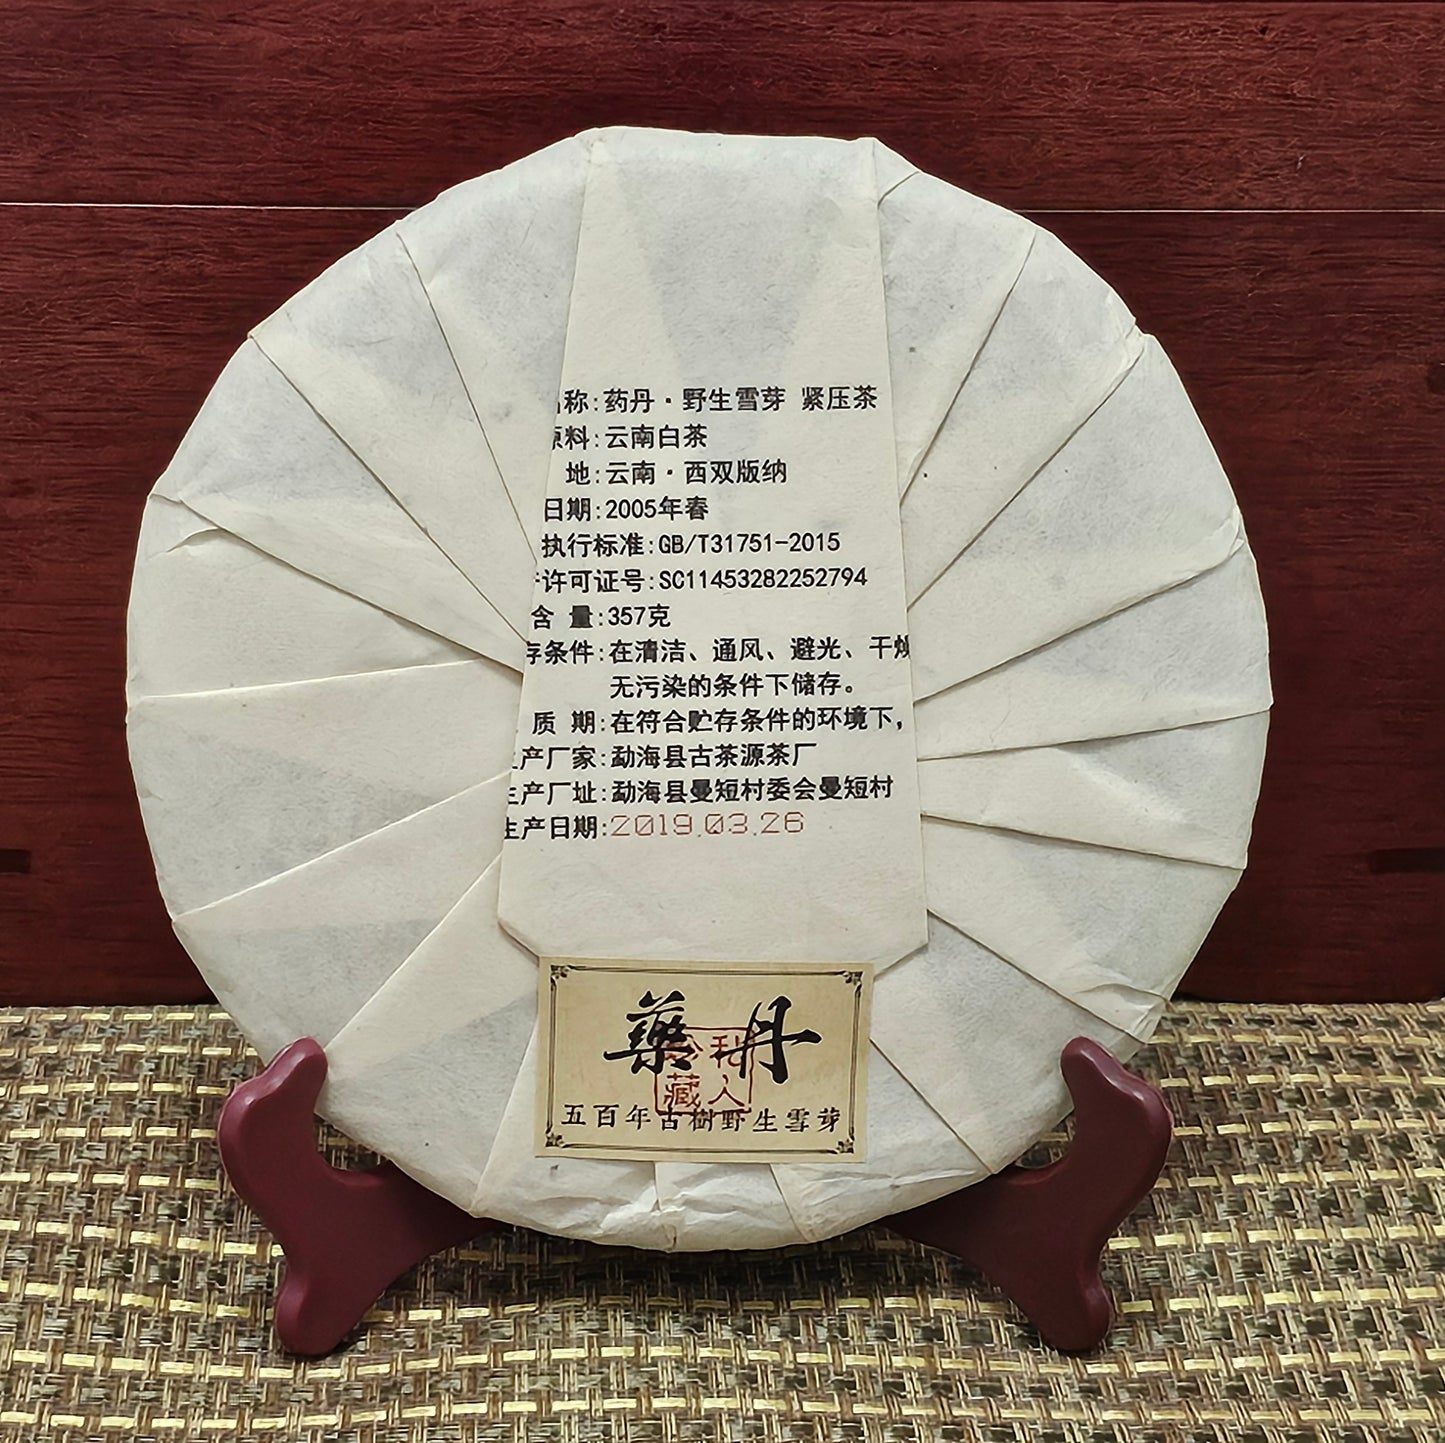 称:药丹·野生雪芽 紧压茶
料:云南白茶
地:云南·西双版纳
日期:2005年春
执行标准:GB/T31751-2015
许可证号:SC11453282252794
含 量:357克
存条件:在清洁、通风、避光、干燥
无污染的条件下储存。
质 期:在符合贮存条件的环境下,
产厂家:勐海县古茶源茶厂
生产厂址:勐海县曼短村委会曼短村
生产日期:2019.03.26
藥丹
私人
藏
五百年古樹野生雪芽